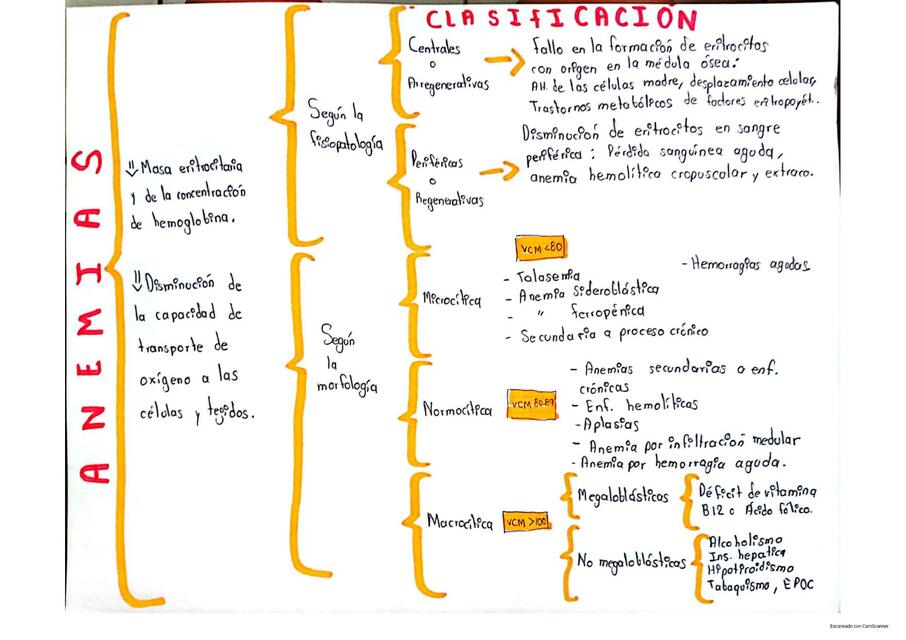 CLASIFICACIÓN
ANEMIAS
⇓ Masa eritrocitaria
y de la concentración
de hemoglobina.
⇓ Disminución de
la capacidad de
transporte de
oxígeno a las
células y tejidos.
Según la
fisiopatología
Centrales
o
Arregenerativas
Fallo en la formación de eritrocitos
con origen en la médula ósea:
Alt. de las células madre, desplazamiento celular,
Trastornos metabólicos de factores eritropoyét.
Periféricas
o
Regenerativas
Disminución de eritrocitos en sangre
periférica: Pérdida sanguínea aguda,
anemia hemolítica cropuscolar y extraco.
Según
la
morfología
Microcítica
VCM <80
- Talasemia
- Anemia sideroblástica
- " ferropénica
- Secundaria a proceso crónico
- Hemorragias agudas
Normocítica
VCM 80-89
- Anemias secundarias a enf.
crónicas
- Enf. hemolíticas
- Aplasias
- Anemia por infiltración medular
- Anemia por hemorragia aguda.
Macrocítica
VCM >100
Megaloblásticos
Déficit de vitamina
B12 o Ácido fólico.
No megaloblásticos
Alcoholismo
Ins. hepatica
Hipotiroidismo
Tabaquismo, EPOC
Escaneado con CamScanner